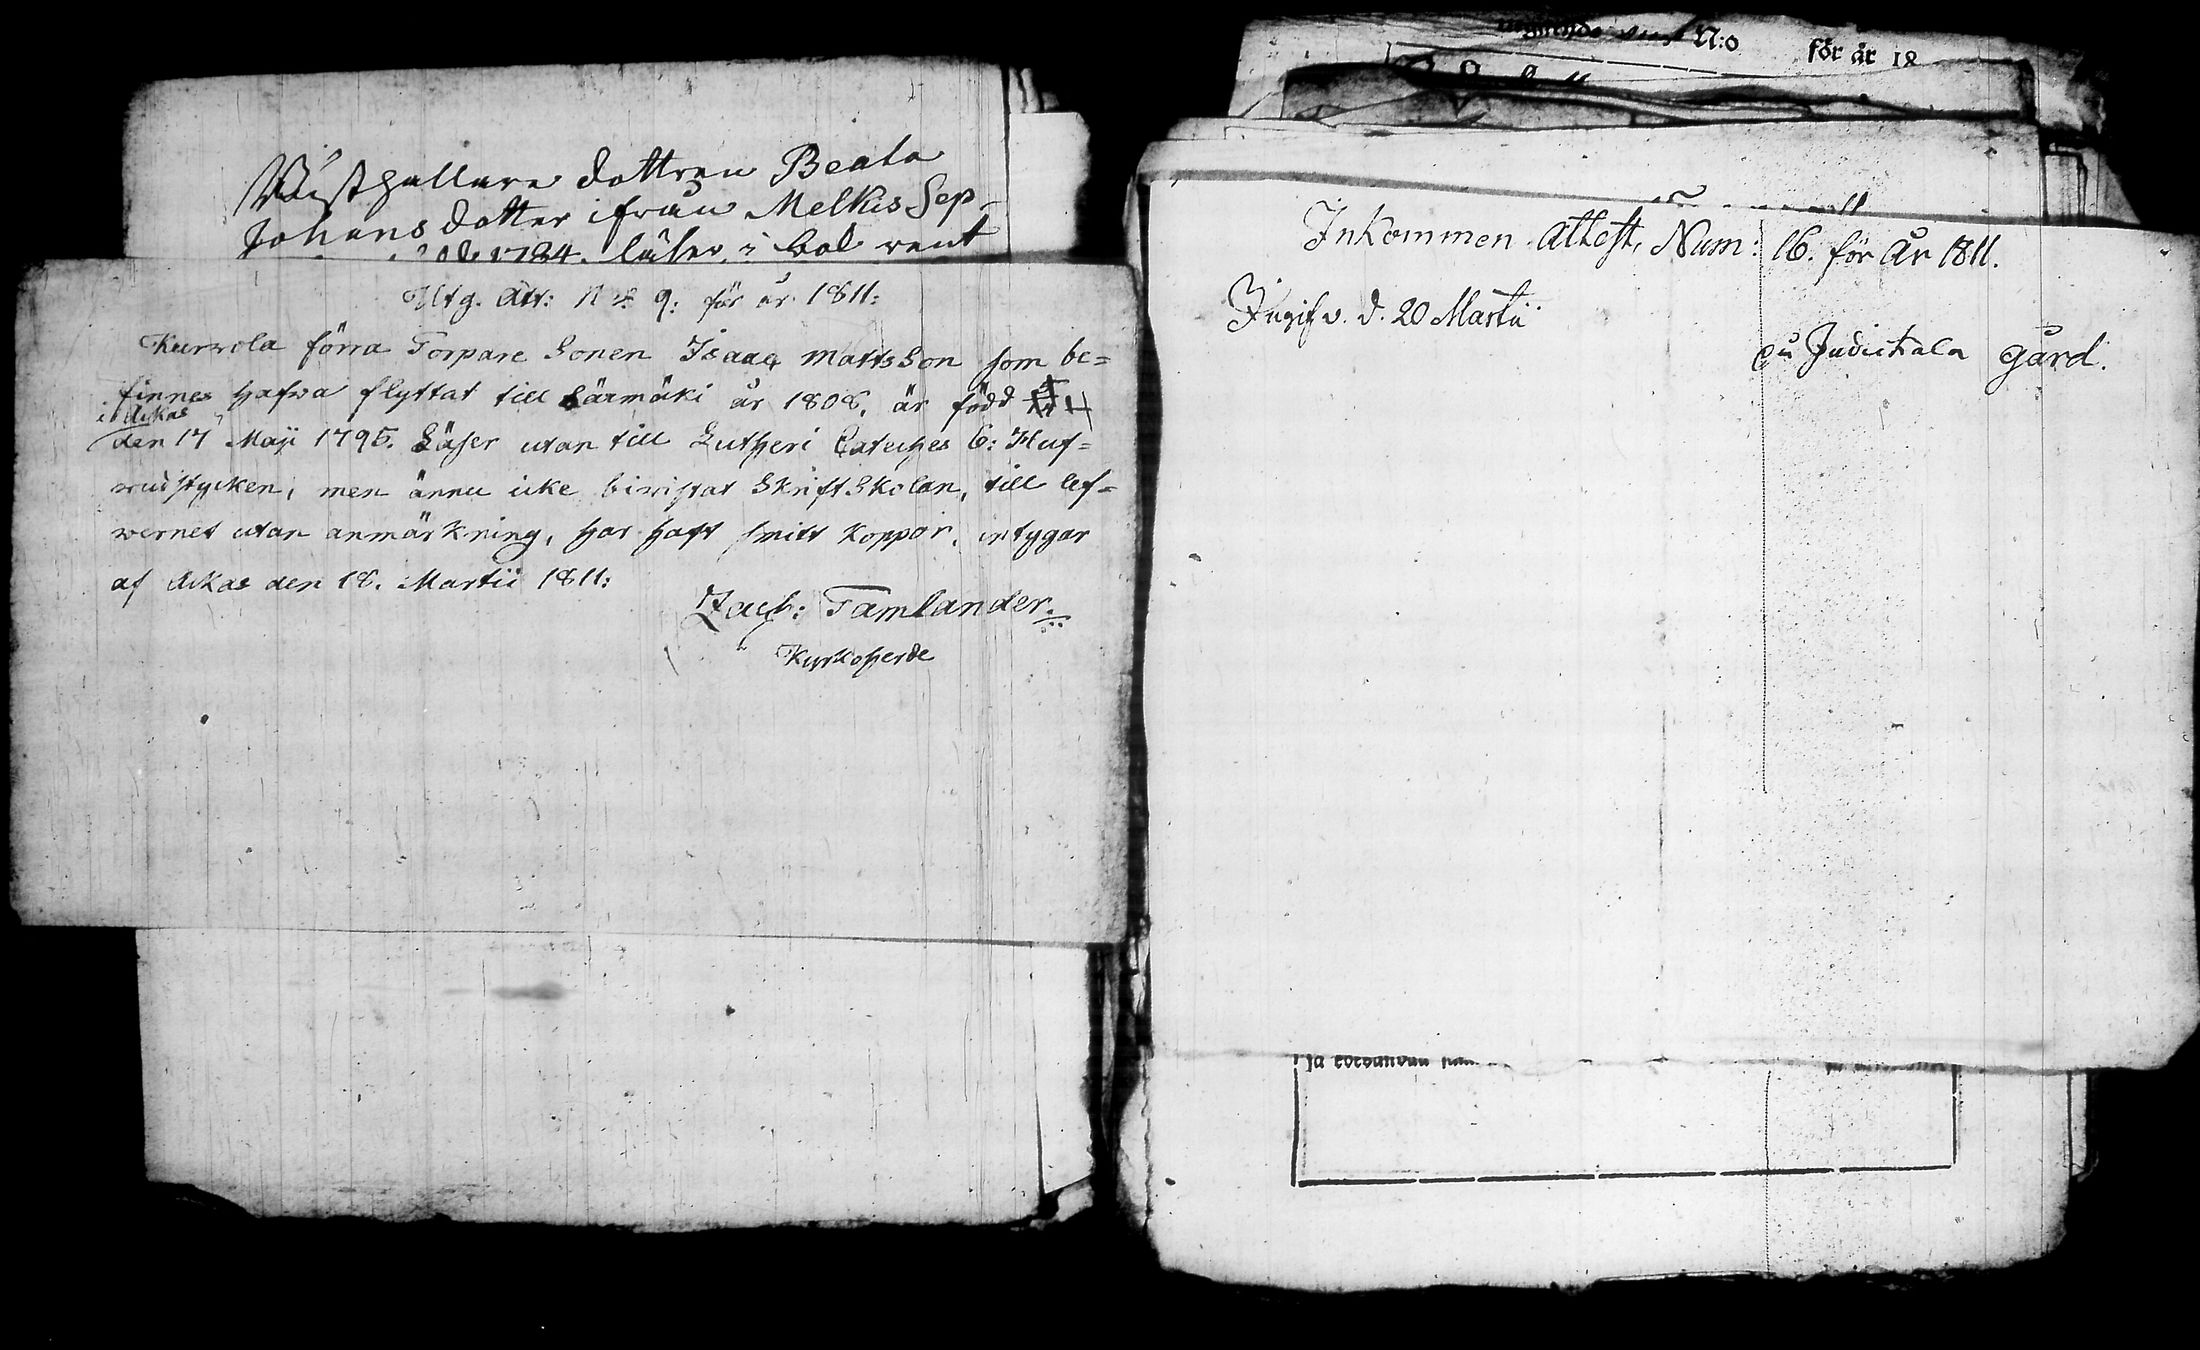 Rusthållare dottren Beata
Johansdotter ifrån Melkis Sep-
1784. läser i bok rent
Utg. Att: N:o 9: för år 1811:
Kurvola förra Torpare Sonen Isaac Mattsson som be=
finnes hafwa flyttat till Särmäki år 1808, är född
i Ackas
den 17 Maji 1795. Läser utan till Lutheri Cateches 6: Huf=
wudstycken, men ännu icke biwistat Skriftskolan, till lef=
wernet utan anmärkning, har haft smitt koppor, intygar
af Ackas den 18. Martii 1811:
Zach: Tamlander.
Kyrkoherde
N:o för år 18
Inkommen Attest, Num: 16. för År 1811.
Ingifv. d. 20 Martii
gård.